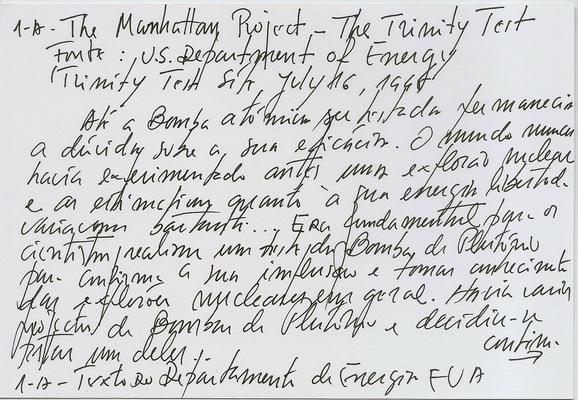 1-A - The Manhattan Project - The Trinity Test
Fonte: U.S. Department of Energy
(Trinity Test Site July 16, 1945
Até a Bomba atómica ser testada permanecia
a dúvida sobre a sua eficácia. O mundo nunca
havia experimentado antes uma explosão nuclear
e as estimativas quanto à sua energia libertada
variavam bastante... Era fundamental para os
cientistas realizar um teste da Bomba de Plutónio
para confirmar a sua implosão e tomar conhecimento
das explosões nucleares em geral. Havia vários
projectos de Bombas de Plutónio e decidiu-se
testar um deles.
contin.
1-A - Texto do Departamento de Energia EUA